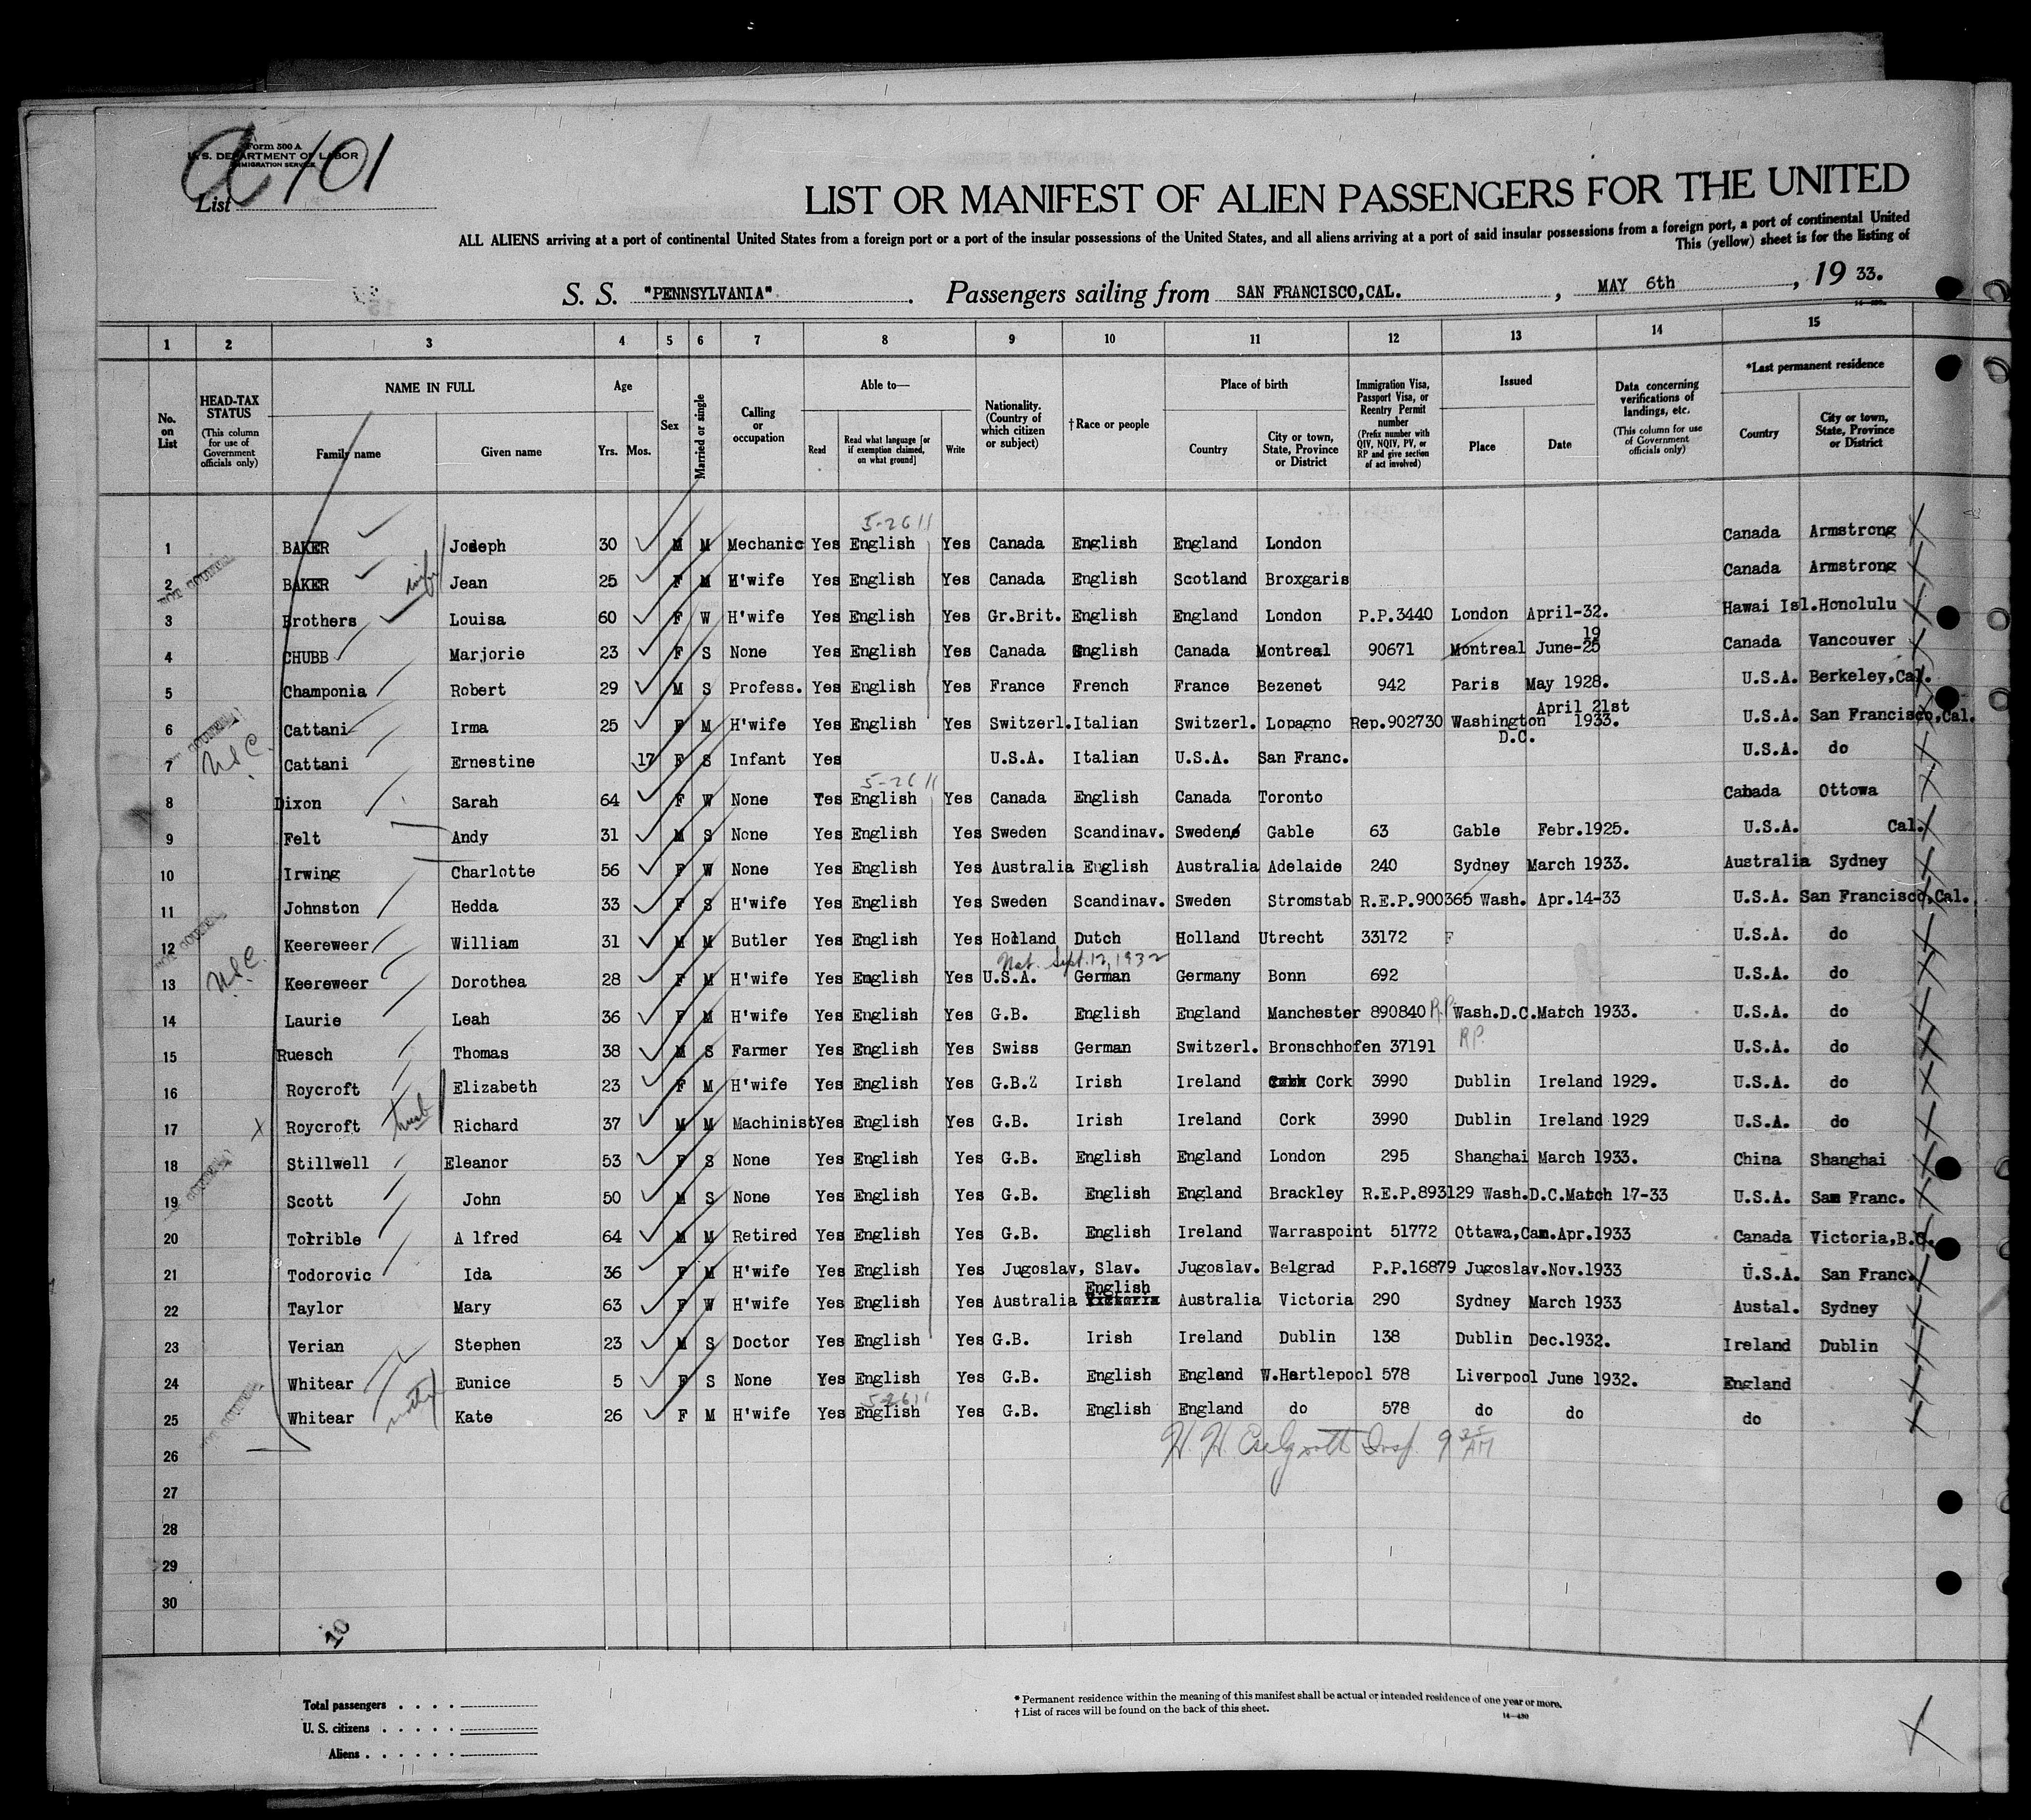 a 101
Form 500 A
U. S. DEPARTMENT OF LABOR
IMMIGRATION SERVICE
List
LIST OR MANIFEST OF ALIEN PASSENGERS FOR THE UNITED
ALL ALIENS arriving at a port of continental United States from a foreign port or a port of the insular possessions of the United States, and all aliens arriving at a port of said insular possessions from a foreign port, a port of continental United
This (yellow) sheet is for the listing of
S. S. "PENNSYLVANIA". Passengers sailing from SAN FRANCISCO,CAL. , MAY 6th , 19 33.
1 2 3 4 5 6 7 8 9 10 11 12 13 14 15
No. on List
HEAD-TAX STATUS (This column for use of Government officials only)
NAME IN FULL Family name Given name
Age Yrs. Mos.
Sex
Married or single
Calling or occupation
Able to— Read Read what language [or if exemption claimed, on what ground] Write
Nationality. (Country of which citizen or subject)
†Race or people
Place of birth Country City or town, State, Province or District
Immigration Visa, Passport Visa, or Reentry Permit number (Prefix number with QIV, NQIV, PV, or RP and give section of act involved)
Issued Place Date
Data concerning verifications of landings, etc. (This column for use of Government officials only)
*Last permanent residence Country City or town, State, Province or District
5-26 11
1 BAKER Joseph 30 M M Mechanic Yes English Yes Canada English England London Canada Armstrong
2 BAKER wife Jean 25 F M H'wife Yes English Yes Canada English Scotland Broxgaris Canada Armstrong
3 Brothers Louisa 60 F W H'wife Yes English Yes Gr.Brit. English England London P.P.3440 London April-32. Hawai Isl.Honolulu
19
4 CHUBB Marjorie 23 F S None Yes English Yes Canada English Canada Montreal 90671 Montreal June-25 Canada Vancouver
5 Champonia Robert 29 M S Profess. Yes English Yes France French France Bezenet 942 Paris May 1928. U.S.A. Berkeley,Cal.
April 21st
6 Cattani Irma 25 F M H'wife Yes English Yes Switzerl. Italian Switzerl. Lopagno Rep.902730 Washington 1933. U.S.A. San Francisco,Cal.
D.C.
7 U.S.C. Cattani Ernestine 17 F S Infant Yes U.S.A. Italian U.S.A. San Franc. U.S.A. do
5-26 11
8 Dixon Sarah 64 F W None Yes English Yes Canada English Canada Toronto Canada Ottowa
9 Felt Andy 31 M S None Yes English Yes Sweden Scandinav. Sweden Gable 63 Gable Febr.1925. U.S.A. Cal.
10 Irwing Charlotte 56 F W None Yes English Yes Australia English Australia Adelaide 240 Sydney March 1933. Australia Sydney
11 Johnston Hedda 33 F S H'wife Yes English Yes Sweden Scandinav. Sweden Stromstab R.E.P.900365 Wash. Apr.14-33 U.S.A. San Francisco,Cal.
12 Keereweer William 31 M M Butler Yes English Yes Holland Dutch Holland Utrecht 33172 F U.S.A. do
Nat. Sept.12,1932
13 U.S.C. Keereweer Dorothea 28 F M H'wife Yes English Yes U.S.A. German Germany Bonn 692 U.S.A. do
14 Laurie Leah 36 F M H'wife Yes English Yes G.B. English England Manchester 890840 R.P. Wash.D.C.March 1933. U.S.A. do
15 Ruesch Thomas 38 M S Farmer Yes English Yes Swiss German Switzerl. Bronschhofen 37191 RP. U.S.A. do
16 Roycroft Elizabeth 23 F M H'wife Yes English Yes G.B.Z Irish Ireland Cork 3990 Dublin Ireland 1929. U.S.A. do
17 X Roycroft husb Richard 37 M M Machinist Yes English Yes G.B. Irish Ireland Cork 3990 Dublin Ireland 1929 U.S.A. do
18 Stillwell Eleanor 53 F S None Yes English Yes G.B. English England London 295 Shanghai March 1933. China Shanghai
19 Scott John 50 M S None Yes English Yes G.B. English England Brackley R.E.P.893129 Wash.D.C.March 17-33 U.S.A. San Franc.
20 Torrible A lfred 64 M M Retired Yes English Yes G.B. English Ireland Warraspoint 51772 Ottawa,Can.Apr.1933 Canada Victoria,B.C.
21 Todorovic Ida 36 F M H'wife Yes English Yes Jugoslav, Slav. Jugoslav. Belgrad P.P.16879 Jugoslav.Nov.1933 U.S.A. San Franc.
English
22 Taylor Mary 63 F W H'wife Yes English Yes Australia Victoria Australia Victoria 290 Sydney March 1933 Austal. Sydney
23 Verian Stephen 23 M S Doctor Yes English Yes G.B. Irish Ireland Dublin 138 Dublin Dec.1932. Ireland Dublin
24 Whitear Eunice 5 F S None Yes English Yes G.B. English England W.Hartlepool 578 Liverpool June 1932. England
5-26 11
25 Whitear mother Kate 26 F M H'wife Yes English Yes G.B. English England do 578 do do do
H. H. Insp. 9 35 AM
26
27
28
29
30
10
Total passengers . . . .
U. S. citizens . . . . .
Aliens . . . . . .
* Permanent residence within the meaning of this manifest shall be actual or intended residence of one year or more.
† List of races will be found on the back of this sheet.
14—430